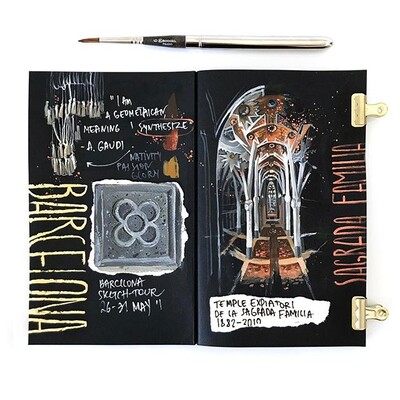 "I AM
A GEOMETRICAN
MEANING I SYNTHESIZE"
- A. GAUDÍ
NATIVITY
PASSION
GLORY
BARCELONA
BARCELONA
SKETCH-TOUR
26-31 MAY
SAGRADA FAMILIA
TEMPLE EXPIATORI
DE LA SAGRADA FAMILIA
1882-2010